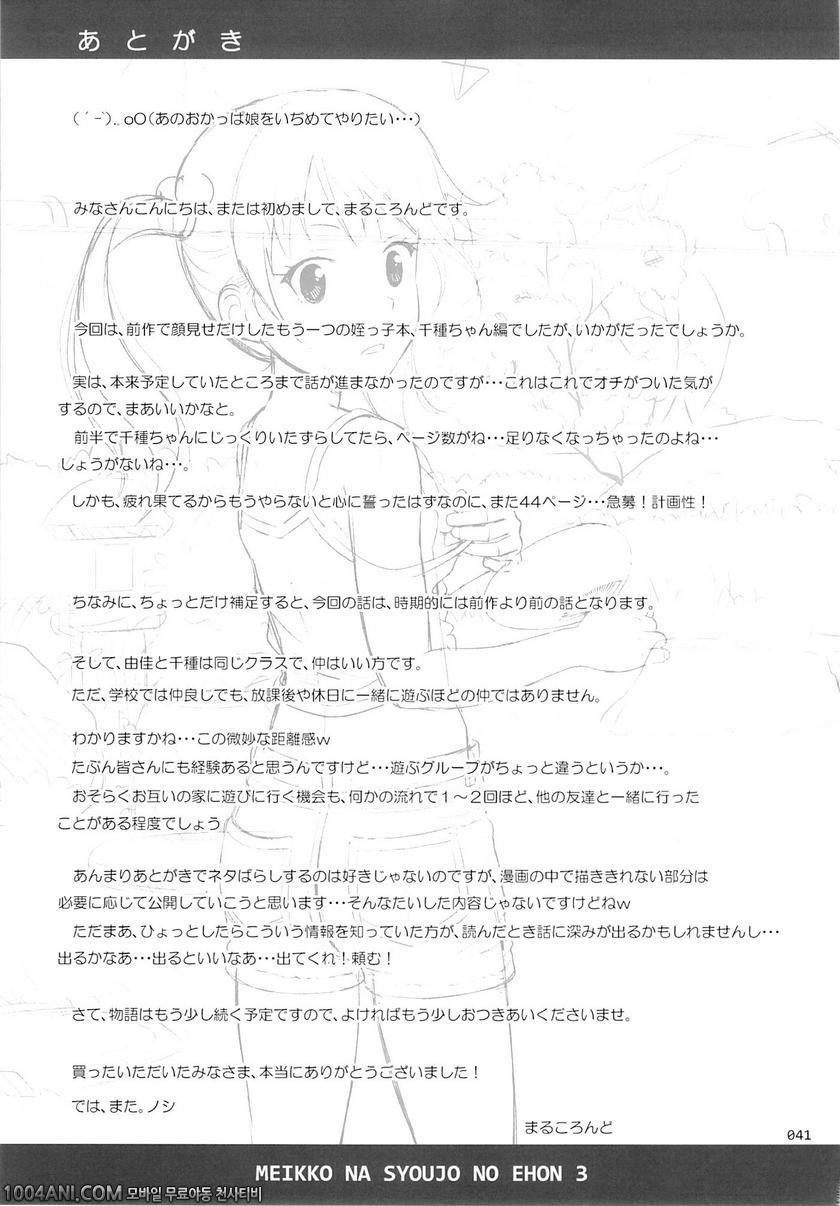 あとがき
( ´ -`)．oO(あのおかっぱ娘をいぢめてやりたい･･･)
みなさんこんにちは、または初めまして、まるころんどです。
今回は、前作で顔見せだけしたもう一つの姪っ子本、千種ちゃん編でしたが、いかがだったでしょうか。
実は、本来予定していたところまで話が進まなかったのですが･･･これはこれでオチがついた気が
するので、まあいいかなと。
前半で千種ちゃんにじっくりいたずらしてたら、ページ数がね･･･足りなくなっちゃったのよね･･･
しょうがないね･･･。
しかも、疲れ果てるからもうやらないと心に誓ったはずなのに、また44ページ･･･急募！計画性！
ちなみに、ちょっとだけ補足すると、今回の話は、時期的には前作より前の話となります。
そして、由佳と千種は同じクラスで、仲はいい方です。
ただ、学校では仲良しても、放課後や休日に一緒に遊ぶほどの仲ではありません。
わかりますかね･･･この微妙な距離感ｗ
たぶん皆さんにも経験あると思うんですけど･･･遊ぶグループがちょっと違うというか･･･。
おそらくお互いの家に遊びに行く機会も、何かの流れで１～２回ほど、他の友達と一緒に行った
ことがある程度でしょう
あんまりあとがきでネタばらしするのは好きじゃないのですが、漫画の中で描ききれない部分は
必要に応じて公開していこうと思います･･･そんなたいした内容じゃないですけどねｗ
ただまあ、ひょっとしたらこういう情報を知っていた方が、読んだとき話に深みが出るかもしれませんし･･･
出るかなあ･･･出るといいなあ･･･出てくれ！頼む！
さて、物語はもう少し続く予定ですので、よければもう少しおつきあいくださいませ。
買ったいただいたみなさま、本当にありがとうございました！
では、また。ノシ
まるころんど
041
MEIKKO NA SYOUJO NO EHON 3
1004ANI.COM 모바일 무료야동 천사티비